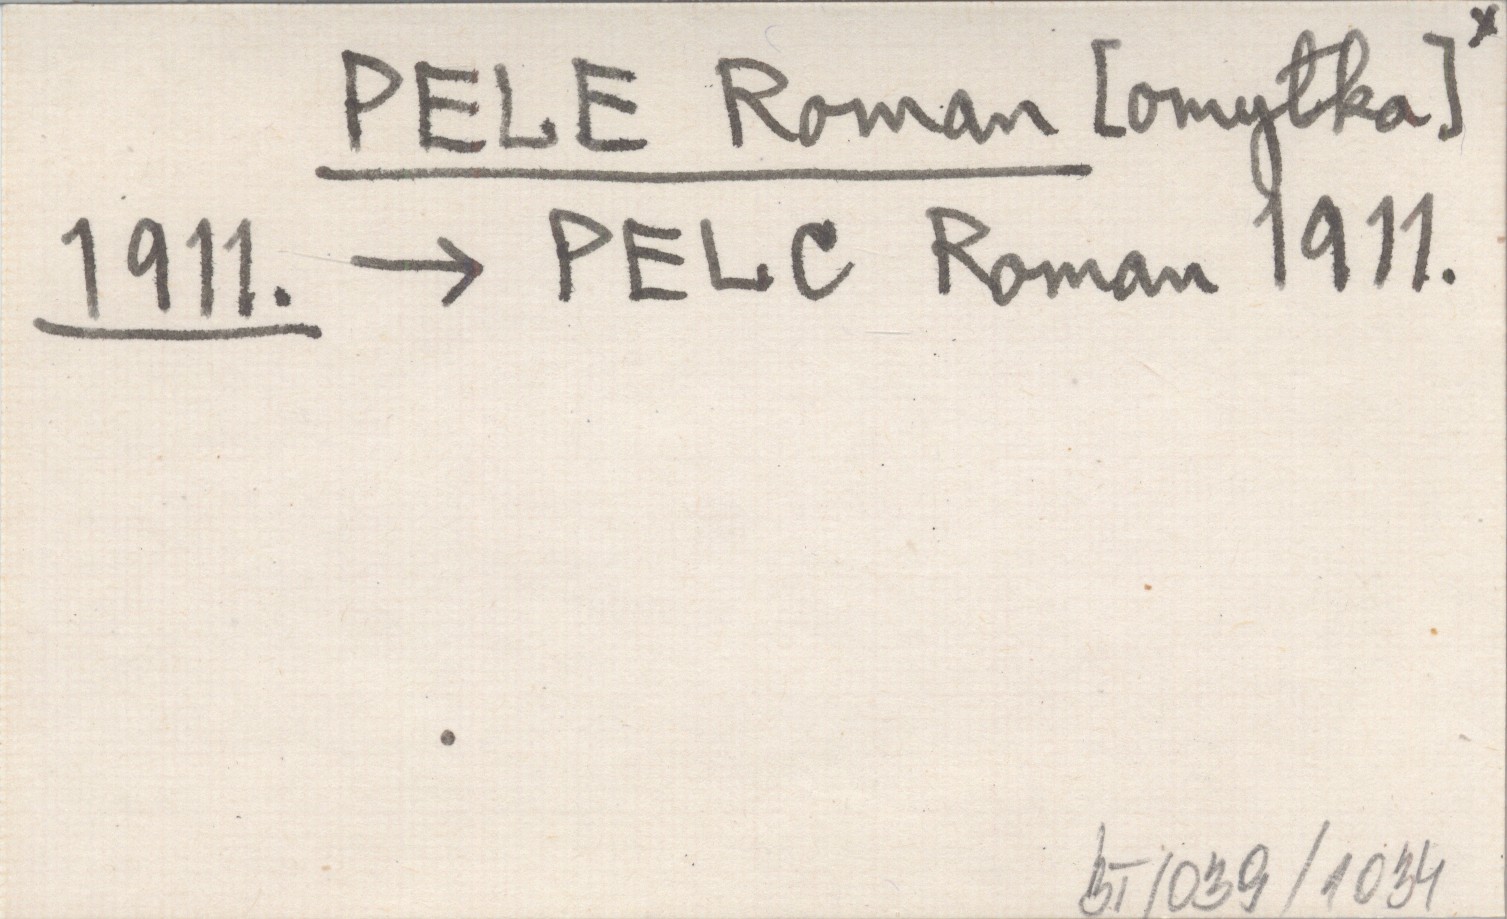 PELE Roman [omyłka]*
1911. → PELC Roman 1911.
/039/1034